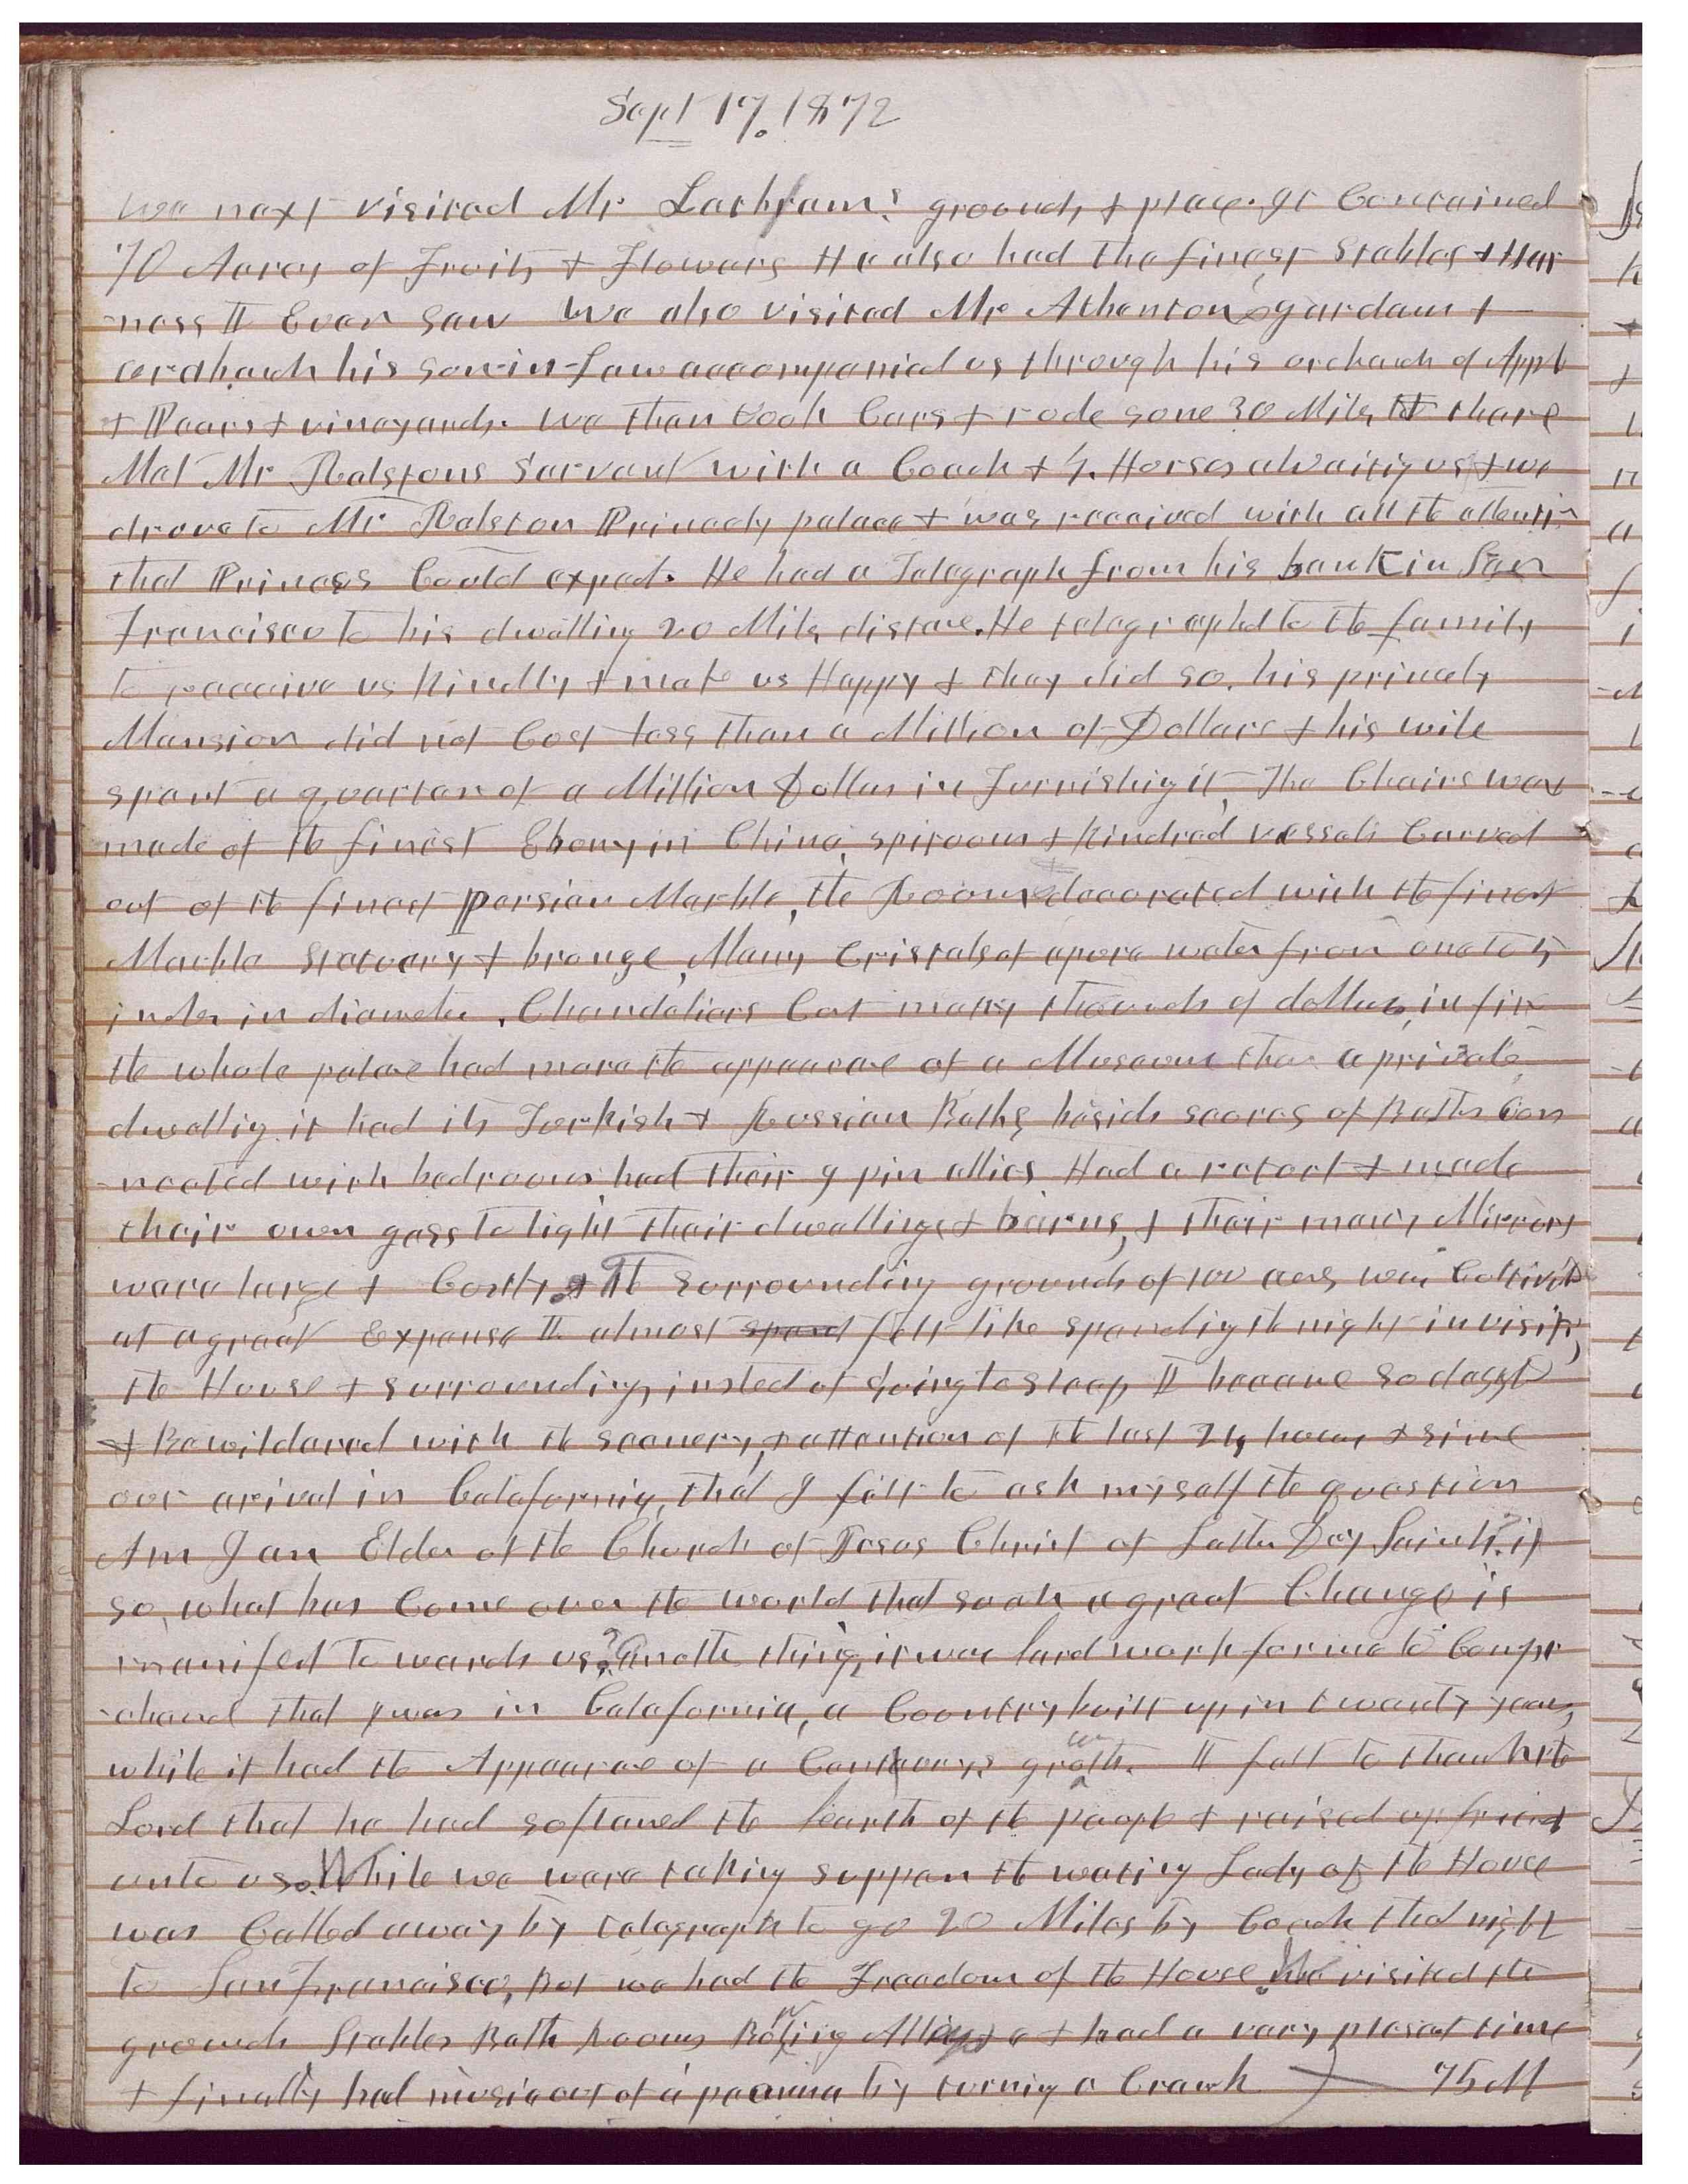 Sept 17. 1872
we next visited Mr Lathams grounds & place. It Contained
70 Acres of Fruits & Flowers He also had the finest Stables & Har
-ness I Ever saw We also visited Mr Athenton gardam &
his son-in-Law accompanied us through his orchard of Appl
& Pears & vineyards. We then took Cars & rode some 20 Miles & there
Met Mr Ralstons Servant with a Coach & 4. Horses awaiting us & we
drove to Mr Ralston Princely palace & was received with all the attention
that Princess Could expect. He had a Telegraph from his bank in San
Francisco to his dwelling 20 Miles distance. He telegraphed to the family
to receive us kindly & make us Happy & they did so. his princely
Mansion did not Cost less than a Million of Dollars & his wife
spent a quarter of a Million Dollars in Furnishing it, The Chairs were
made of the finest Ebony in China, spitoons & kindred vessels Carved
out of the finest Persian Marble, the Rooms decorated with the finest
Marble Statuary & bronze, Many Cristals of opera water from one to 5
inches in diameter. Chandeliers Cost many thousands of dollars, in fine
the whole palace had more the appearance of a Museum than a private
dwelling. it had its Turkish & Russian Baths beside scores of Baths Con
-nected with bedrooms had their 9 pin allies Had a retort & made
their own gass to light their dwellings & barns, & their many Mirrors
were large & Costly. & The surrounding grounds of 100 acres were Cultivated
at a great Expense I almost spend felt like spending the night in visiting
the House & surroundings insted of going to sleep I became so dazzled
& Bewildered with the scenery, & attention of the last 24 hours & since
our arival in Calafornia, that I felt to ask myself the question
Am I an Elder of the Church of Jesus Christ of Latter Day Saints? if
so, what has Come over the world that such a great Change is
manifest towards us? Another thing, it was hard work for me to Compr
-ehend that I was in Calafornia, a Country built up in twenty years,
while it had the Appearance of a Centurys growth. I felt to thank the
Lord that he had softened the hearts of the people & raised up friends
unto us. While we were taking supper the wating Lady of the House
was Called away by telegraph to go 20 Miles by Coach that night
to San Francisco, But we had the Freedom of the House. We visited the
grounds Stables Bath Rooms Bowling Alleys & had a very plesant time
& finally had music out of a peanna by turning a Crank 75 M